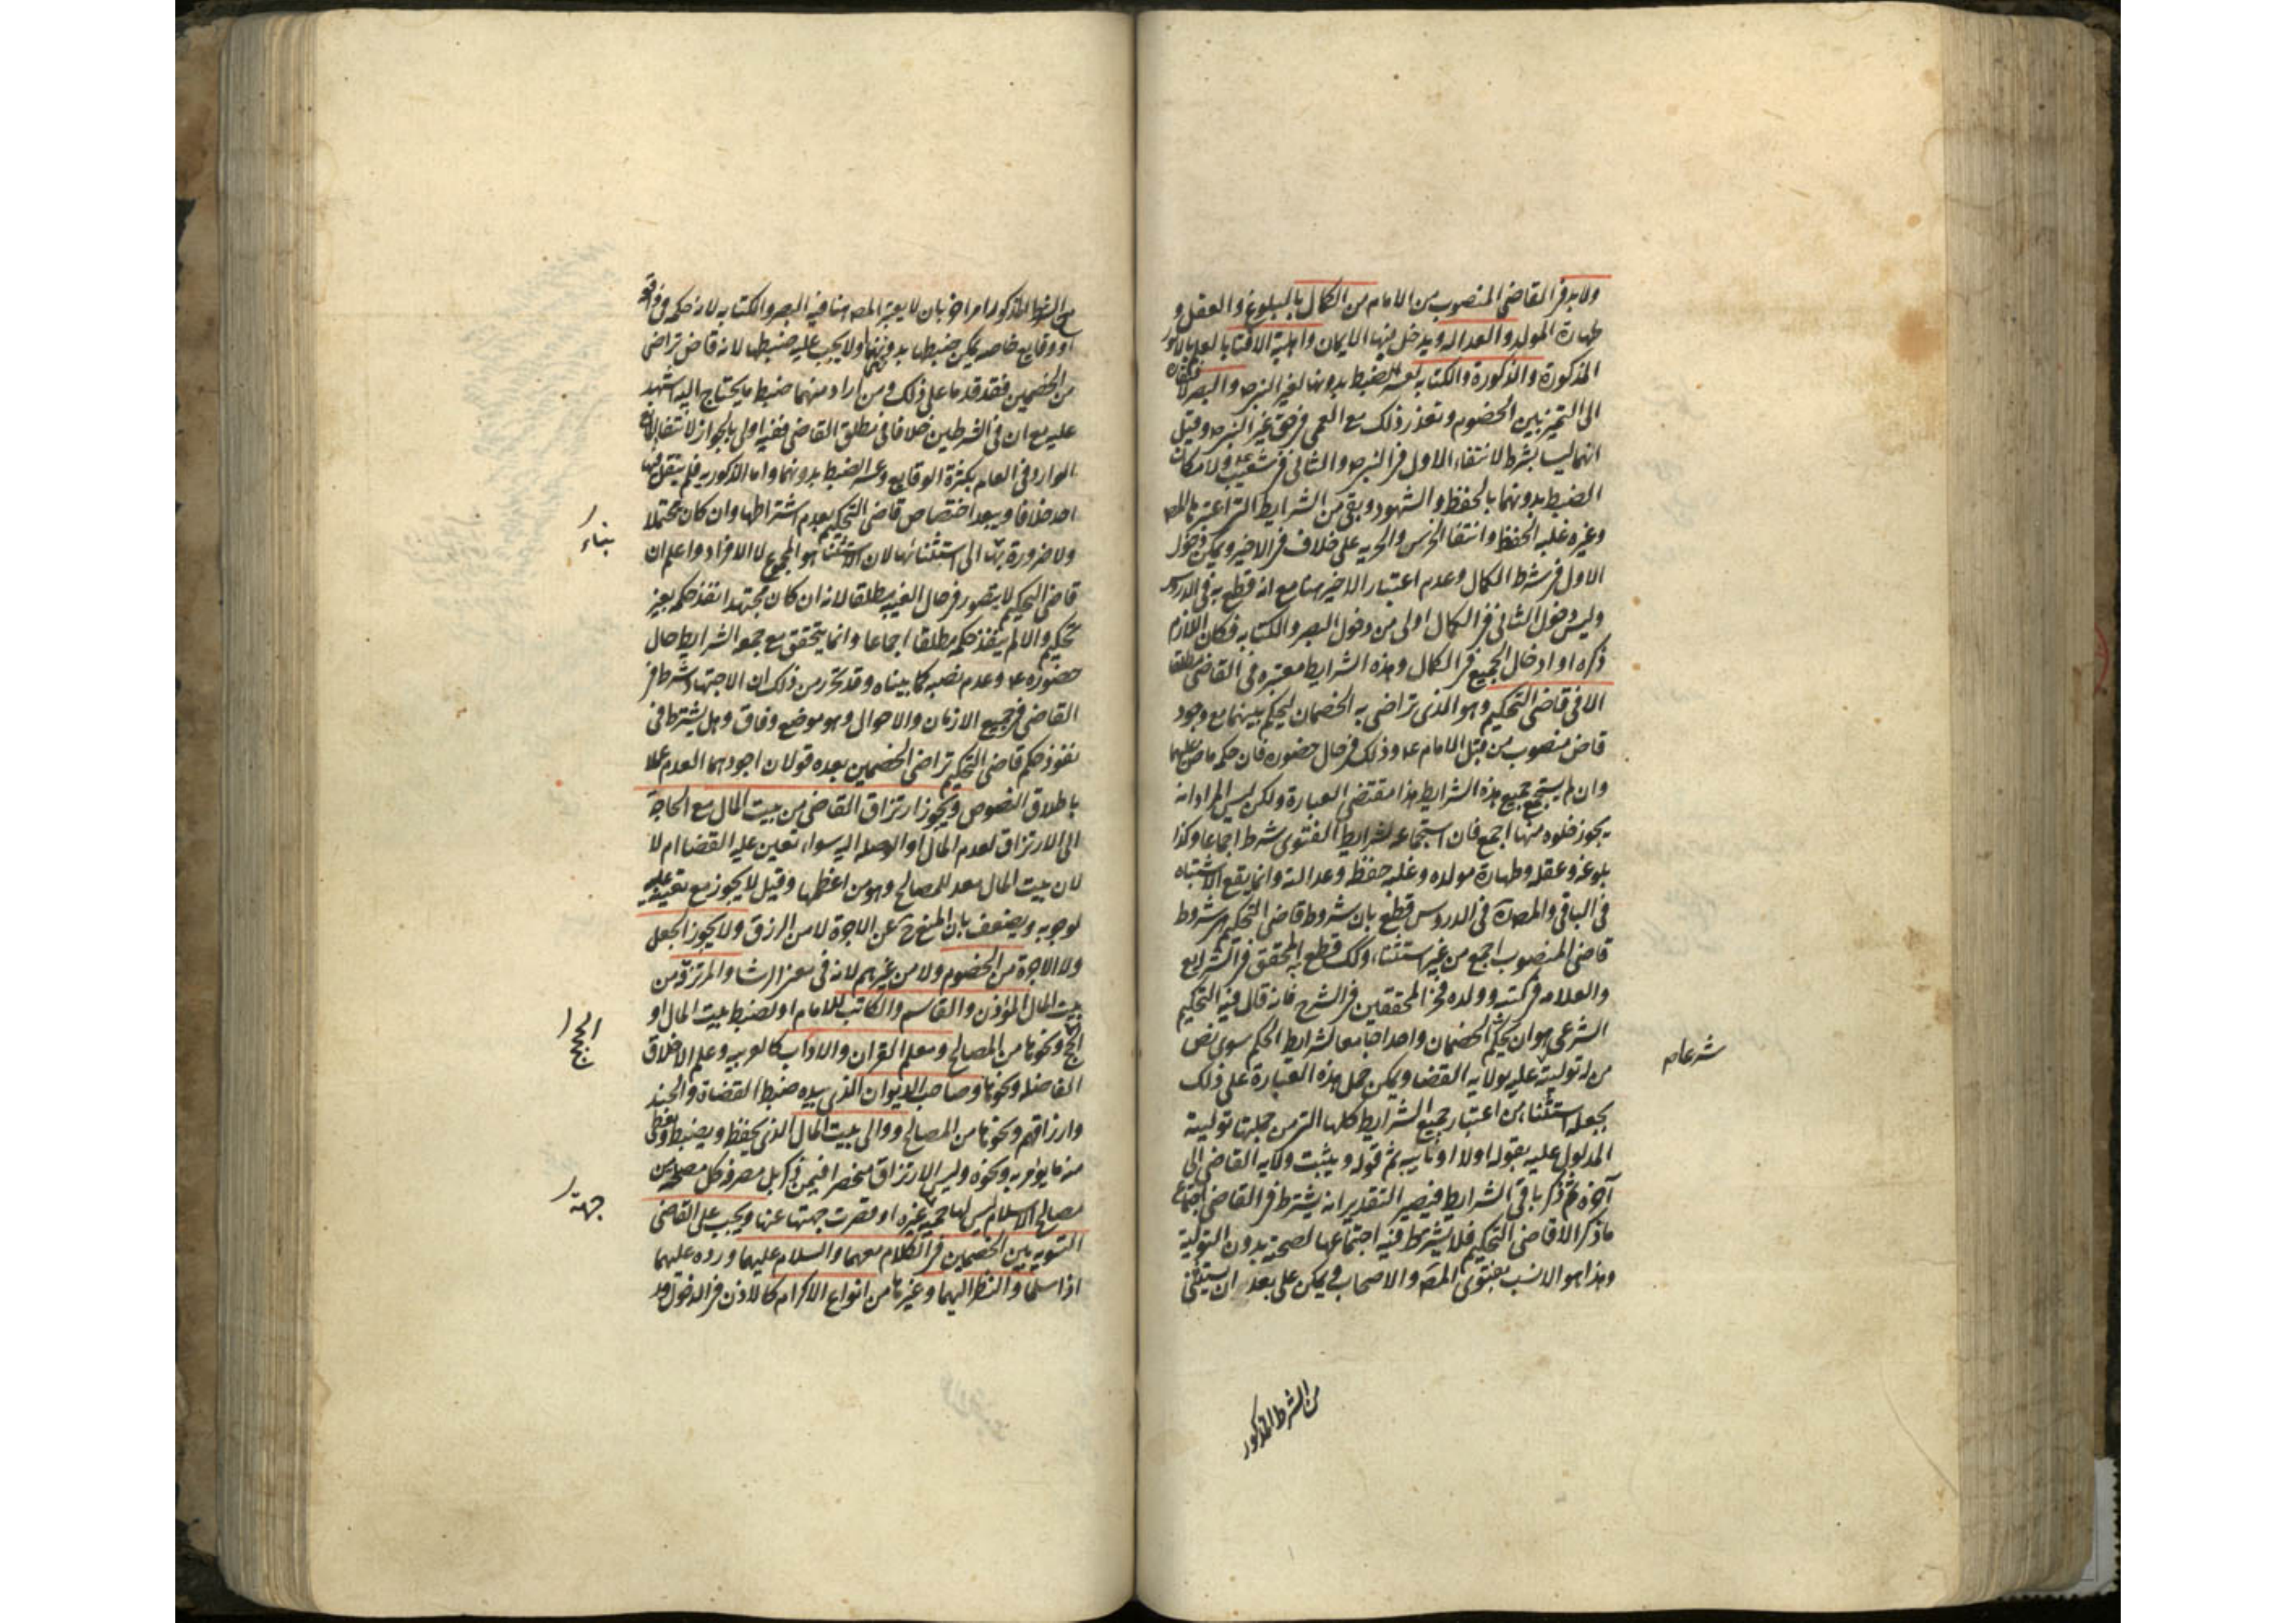 ولابد في القاضي المنصوب من الامام من الكمال بالبلوغ والعقل و
طهارة المولد والعدالة ويدخل فيها الايمان واهلية الافتا بالعلم بالامور
المذكورة والذكورة والكتابة لعسر الضبط بدونها لغير النبي ص والبصر لافتقاره
الى التمييز بين الخصوم وتعذر ذلك مع العمى في حق غير النبي ص وقيل
انهما ليسا بشرط لانتفاء الاول في النبي ص والثاني في شعيب ع ولامكان
الضبط بدونهما بالحفظ والشهود وبقي من الشرايط التي اعتبرها المص
وغيره غلبة الحفظ وانتفا الخرس والحرية على خلاف في الاخير ويمكن دخول
الاول في شرط الكمال وعدم اعتبار الاخير هنا مع انه قطع به في الدروس
وليس دخول الثاني في الكمال اولى من دخول البصر والكتابة فكان اللازم
ذكره او ادخال الجميع في الكمال وهذه الشرايط معتبرة في القاضي مطلقا
الا في قاضي التحكيم وهو الذي تراضى به الخصمان ليحكم بينهما مع وجود
قاض منصوب من قبل الامام ع وذلك في حال حضوره فان حكمه ماض عليهما
وان لم يستجمع جميع هذه الشرايط هذا مقتضى العبارة ولكن ليس المراد انه
يجوز خلوه منها اجمع فان استجماعه لشرايط الفتوى شرط اجماعا وكذا
بلوغه وعقله وطهارة مولده وغلبة حفظه وعدالته وانما يقع الاشتباه
في الباقي والمص ره في الدروس قطع بان شروط قاضي التحكيم هي شروط
قاضي المنصوب اجمع من غير استثناء وكك قطع به المحقق في الشرايع
والعلامة في كتبه وولده فخر المحققين في الشرح فانه قال فيه التحكيم
الشرعي هو ان يحكم الخصمان واحدا جامعا لشرايط الحكم سوى نص
من له توليته عليه بولاية القضا ويمكن حمل هذه العبارة على ذلك
بجعل استثناء من اعتبار جميع الشرايط كلها التي من جملتها توليته
المدلول عليه بقوله اولا او نايبه ثم قوله ويثبت ولاية القاضي الى
آخره ثم ذكر باقي الشرايط فيصير التقدير انه يشترط في القاضي اجتماع
ما ذكر الا قاضي التحكيم فلا يشترط فيه اجتماعها لصحته بدون التولية
وهذا هو الانسب بفتوى المص والاصحاب ويمكن على بعد ان يستثنى
شرعا م
من الشرط المذكور
من الشرط المذكور امر اخر بان لا يعتبر المص هنا فيه البصر والكتابة لانه حكم في واقعة
او وقايع خاصة يمكن ضبطها بدونهما ولا يجب عليه ضبطها لانه قاض تراضى
من الخصمين فقد قدما على ذلك ومن اراد منهما ضبط ما يحتاج اليه اشهد
عليه مع ان في الشرطين خلافا في مطلق القاضي ففيه اولى بالجواز لانتفا المانع
الوارد في العام بكثرة الوقايع وعسر الضبط بدونهما واما الذكورية فلم ينقل فيها
احد خلافا ويبعد اختصاص قاضي التحكيم بعدم اشتراطها وان كان محتملا
ولا ضرورة بنا الى استثنائها لان الاستثناء هو المجموع لا الافراد واعلم ان
قاضي التحكيم لا يتصور في حال الغيبة مطلقا لانه ان كان مجتهدا نفذ حكمه بغير
تحكيم والا لم ينفذ حكمه مطلقا اجماعا وانما يتحقق مع جمعه الشرايط حال
حضوره ع وعدم نصبه كما بيناه وقد تحرر من ذلك ان الاجتهاد شرط في
القاضي في جميع الازمان والاحوال وهو موضع وفاق وهل يشترط في
نفوذ حكم قاضي التحكيم تراضي الخصمين بعده قولان اجودهما العدم عملا
باطلاق النصوص ويجوز ارتزاق القاضي من بيت المال مع الحاجة
الى الارتزاق لعدم المال او الوصلة اليه سواء تعين عليه القضا ام لا
لان بيت المال معد للمصالح وهو من اعظمها وقيل لا يجوز مع تعينه عليه
لوجوبه ويضعف بان المنع ح عن الاجرة لا من الرزق ولا يجوز الجعل
ولا الاجرة من الخصوم ولا من غيرهم لانه في معنى الرشا والمرتزقة من
بيت المال المؤذن والقاسم والكاتب للامام او لضبط بيت المال او
الحج ونحوها من المصالح ومعلم القران والاداب كالعربية وعلم الاخلاق
الفاضلة ونحوها وصاحب الديوان الذي بيده ضبط القضاة والجند
وارزاقهم ونحوها من المصالح ووالي بيت المال الذي يحفظه ويضبطه ويعطى
منه ما يؤمر به ونحوه وليس الارتزاق منحصرا فيمن ذكر بل مصرفه كل مصلحة من
مصالح الاسلام ليس لها جهة غيره او قصرت جهتها عنها ويجب على القاضي
التسوية بين الخصمين في الكلام معهما والسلام عليهما ورده عليهما
اذا سلما والنظر اليهما وغيرها من انواع الاكرام كالاذن في الدخول و
بناء
الحج
جهة